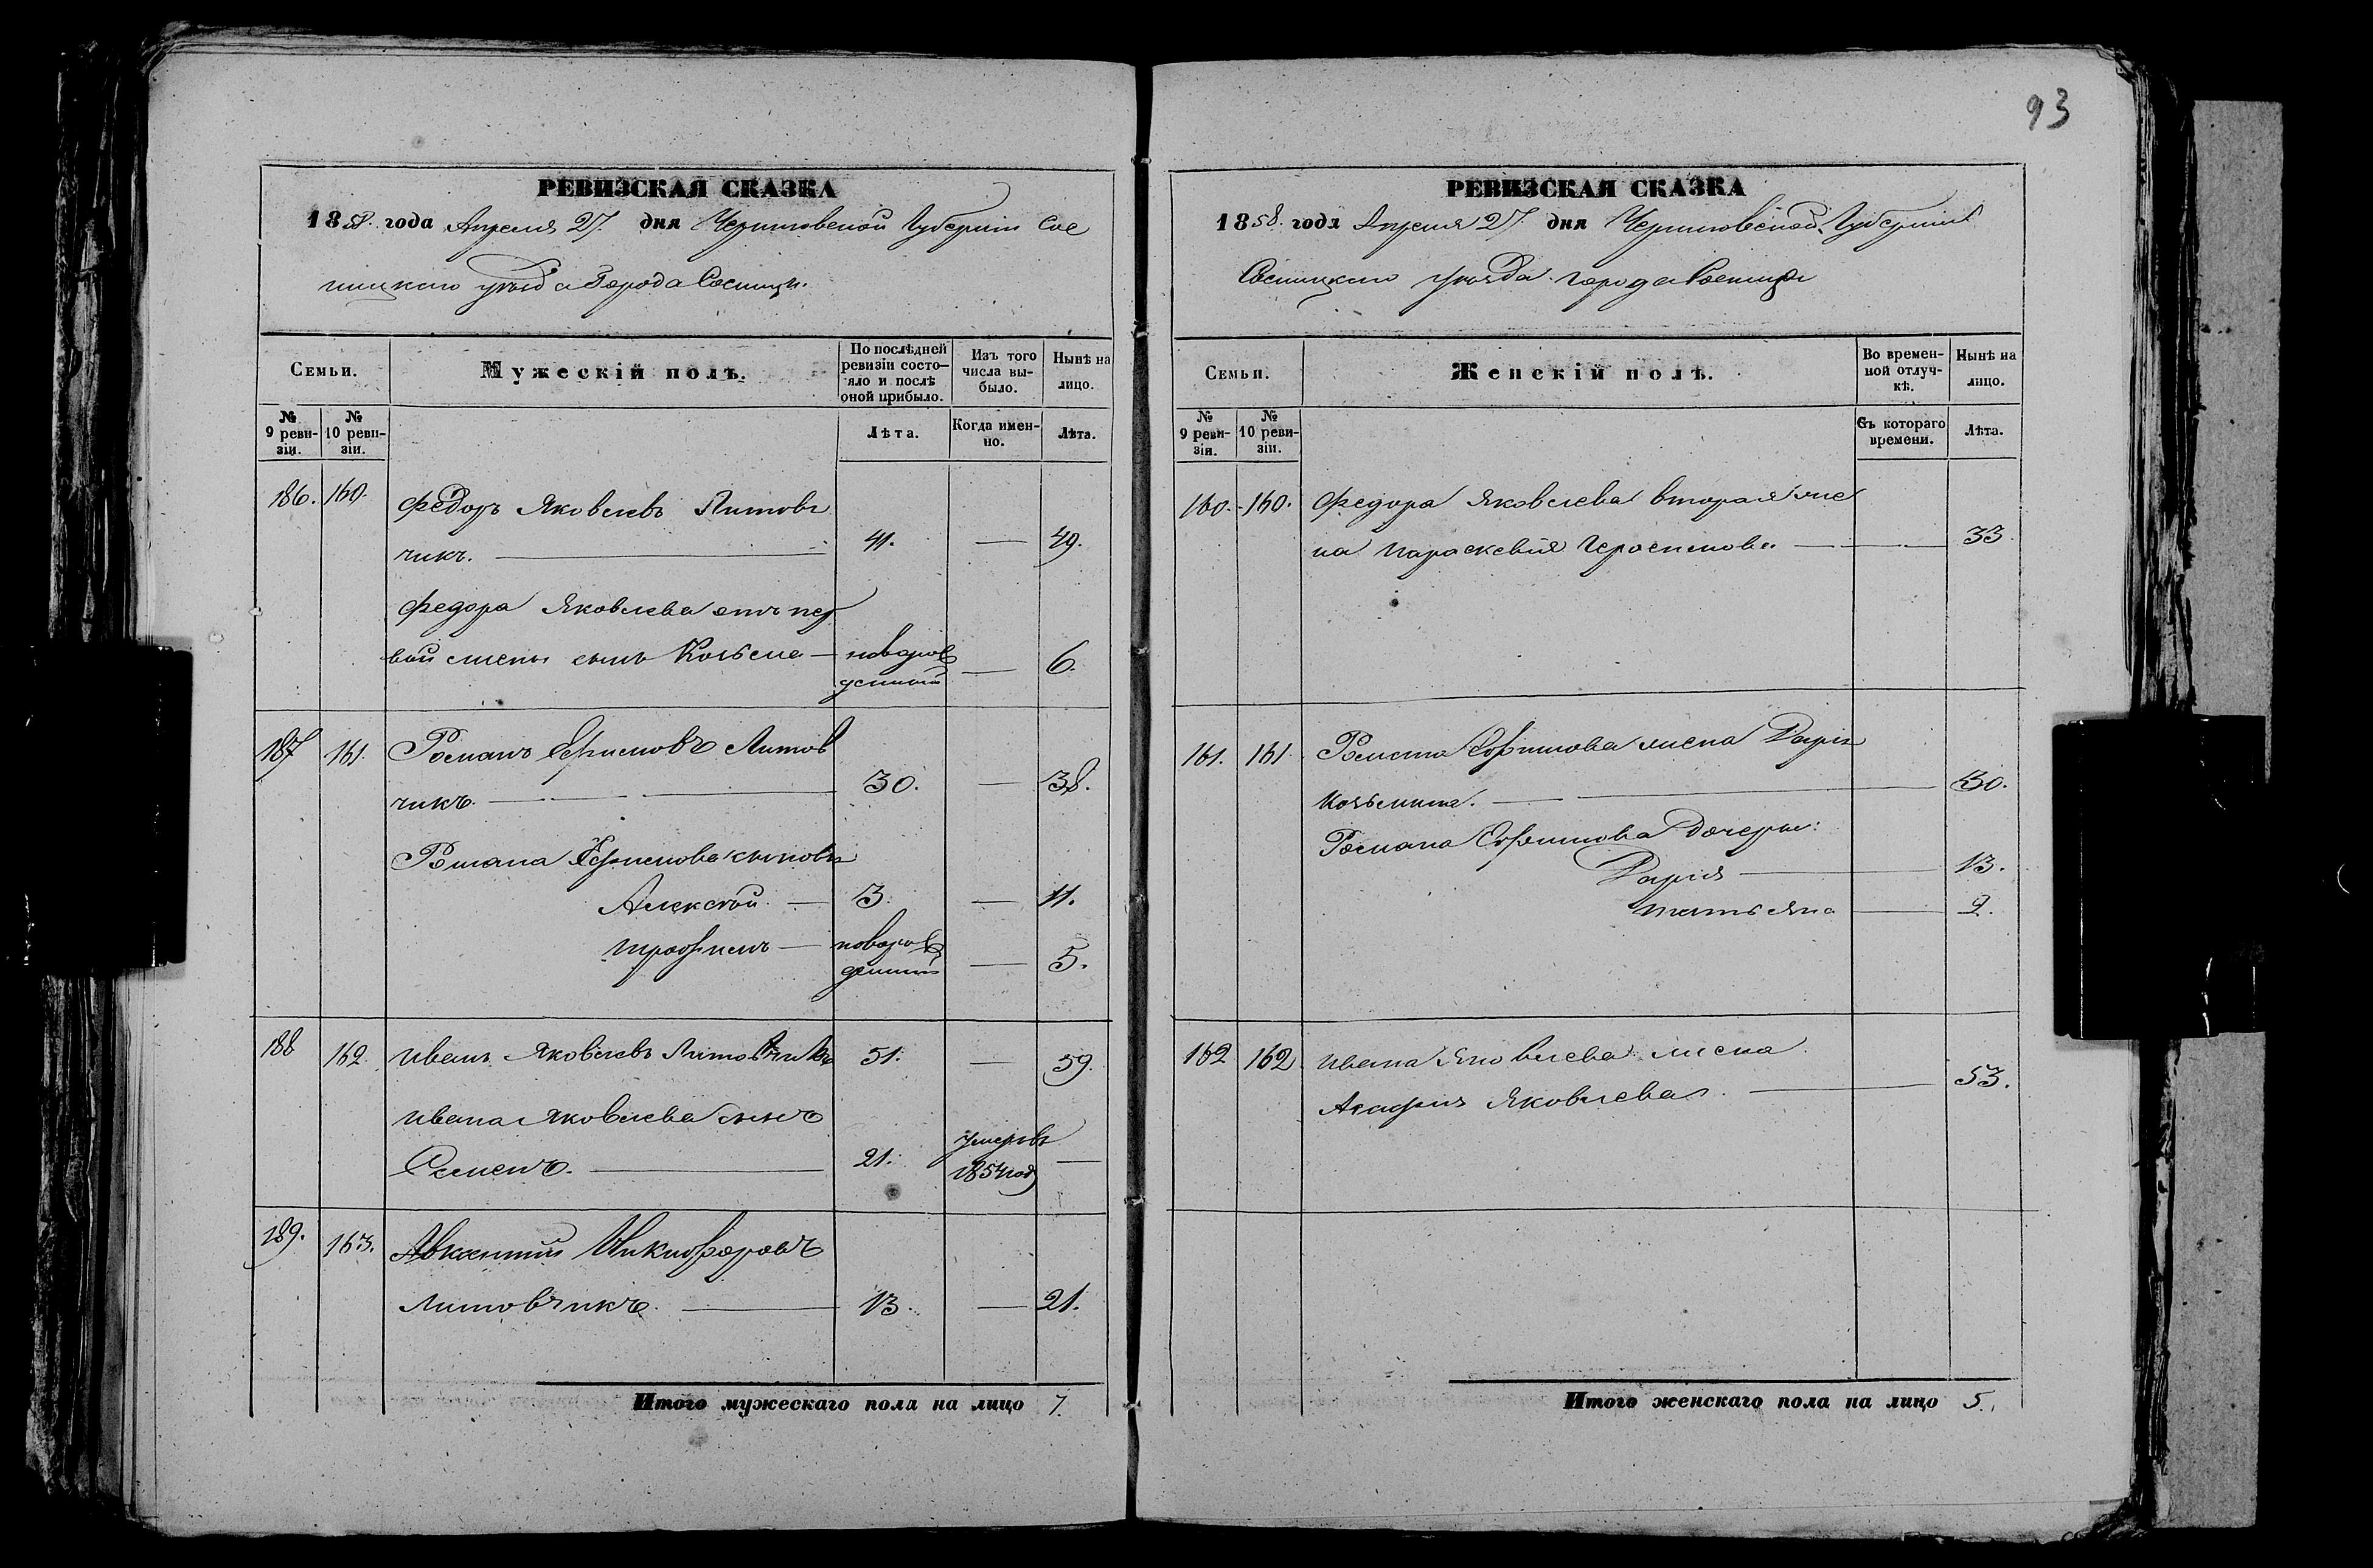 93
РЕВИЗСКАЯ СКАЗКА
1858. года Апреля 27. дня Черниговской Губерніи Сос
ницкаго уѣзда Города Сосницы.
Семьи.
Мужескій полъ.
По послѣдней ревизіи состояло и послѣ оной прибыло.
Изъ того числа выбыло.
Нынѣ на лицо.
№ 9 ревизіи.
№ 10 ревизіи.
Лѣта.
Когда именно.
Лѣта.
186. 160. Федоръ Яковлевъ Литов
чикъ. — 41. — 49.
Федора Яковлева отъ пер
вой жены сынъ Козьма — новорож
денный — 6.
187 161. Романъ Ефимовъ Литов
чикъ. — 30. — 38.
Романа Ефимова сыновья
Алексѣй — 3. — 11.
Трофимъ — новорож
денный — 5.
188 162. Иванъ Яковлевъ Литовчикъ 51. — 59.
Ивана Яковлева сынъ
Семенъ. — 21. умеръ въ
1854 году —
189. 163. Авксентій Никифоровъ
Литовчикъ. — 13. — 21.
Итого мужескаго пола на лицо 7.
РЕВИЗСКАЯ СКАЗКА
1858. года Апреля 27. дня Черниговской Губерніи
Сосницкаго уѣзда города Сосницы
Семьи.
Женскій полъ.
Во временной отлучкѣ.
Нынѣ на лицо.
№ 9 ревизіи.
№ 10 ревизіи.
Съ котораго времени.
Лѣта.
160. 160. Федора Яковлева вторая же
на Параскевія Герасимова — 33.
161. 161. Романа Ефимова жена Дарья
Козьмина. — 30.
Романа Ефимова Дочери:
Дарія — 13.
Татьяна — 2.
162 162 Ивана Яковлева жена
Агафія Яковлева. — 53.
Итого женскаго пола на лицо 5.